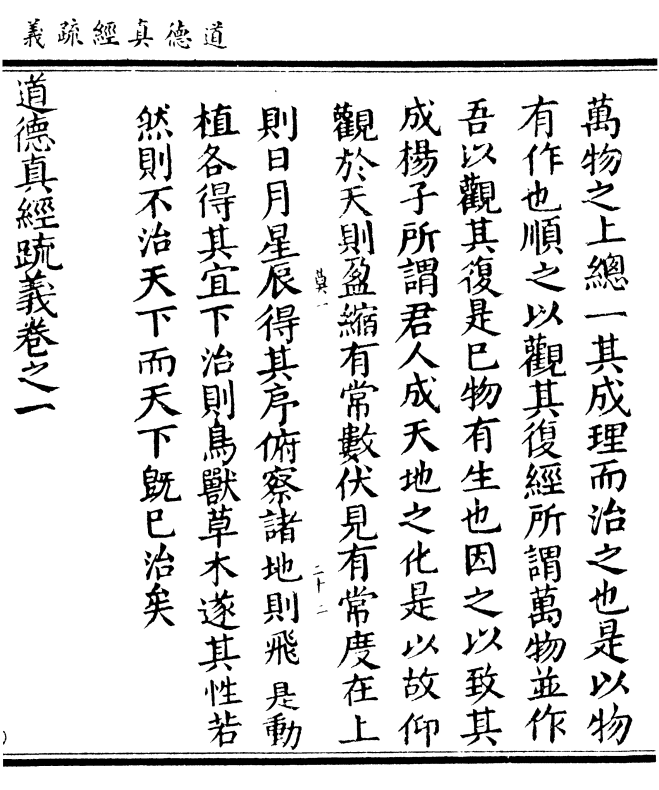 道德真經疏義
萬物之上總一其成理而治之也是以物
有作也順之以觀其復經所謂萬物並作
吾以觀其復是已物有生也因之以致其
成楊子所謂君人成天地之化是以故仰
觀於天則盈縮有常數伏見有常度在上
莫一
二十二
則日月星辰得其序俯察諸地則飛是動
植各得其宜下治則鳥獸草木遂其性若
然則不治天下而天下既已治矣
道德真經疏義卷之一